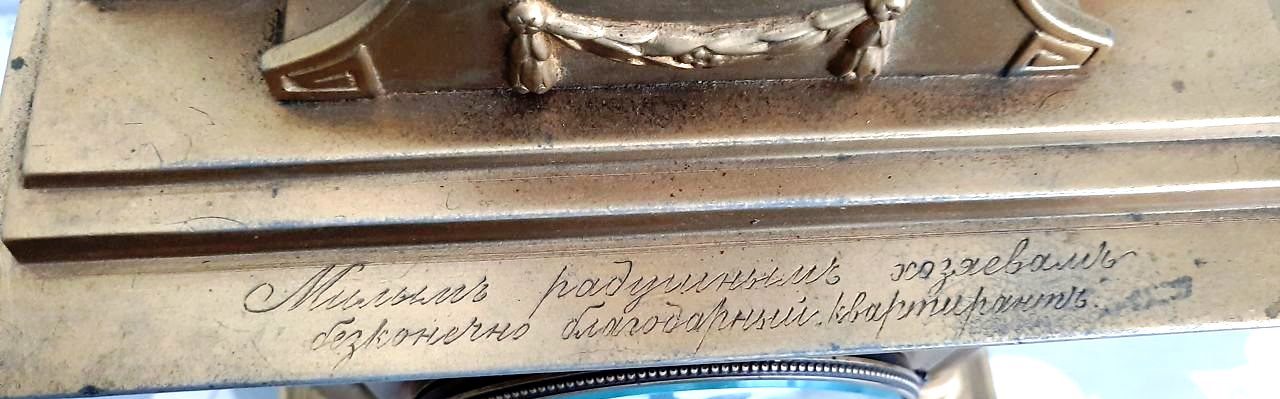 Милымъ радушнымъ хозяевамъ
безконечно благодарный квартирантъ.